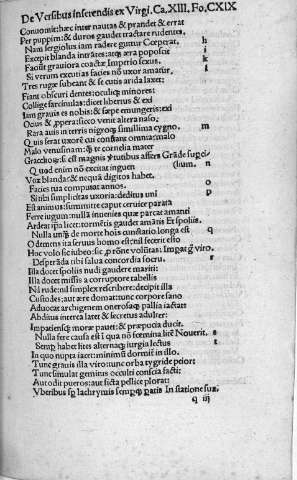 De Versibus inserendis ex Virgi. Ca. XIII. Fo. CXIX
Conuomit: hæc inter nautas & prandet & errat
Per puppim: & duros gaudet tractare rudentes.
Nam sergiolus iam radere guttur Cœperat, h
Excepit blanda intrātes: atq; æra poposcit i
Facosit grauiora coactæ Imperio sexus. k
Si verum excutias facies nō uxor amatur, l
Tres rugæ subeant & se cutis arida laxet:
Fiant obscuri dentes: oculiq; minores:
Collige sarcinulas: dicet libertus & exi
Iam grauis es nobis: & sæpe emungeris: exi
Ocius & ppera: sicco venit altera naso:
Rara auis in terris nigroq; simillima cygno, m
Quis ferat uxorē cui constant omnia: malo
Malo venusinam: q̄ te cornelia mater
Gracchoꝝ: si cū magnis virtutibus affers Grāde supci/
Quod enim nō excitat inguen (lium. n
Vox blanda: & nequā digitos habet.
Facies tua computat annos. o
Si tibi simplicitas uxoria: deditus uni p
Est animus: summitte caput ceruice parata
Ferre iugum: nullā inuenies quæ parcat amanti
Ardeat ipsa licet: tormētis gaudet amātis Et spoliis.
Nulla unq̄ de morte hoīs cunctatio longa est q
O demens ita seruus homo est: nil fecerit esto
Hoc volo sic iubeo: sit p rōne volūtas: Impat g̊ viro.
Desperāda tibi salua concordia socru. r
Illa docet spoliis nudi gaudere mariti:
Illa docet missis a corruptore tabellis
Nā rude: nil simplex rescribere: decipit illa
Custodes: aut ære domat: tunc corpore sano
Aduocat archigenem onerosaq; pallia iactat:
Abditus interea latet & secretus adulter:
Impatiensq; moræ pauet: & præpucia ducit.
Nulla fere causa est ī qua nō fœmina litē Nouerit. s
Semp habet lites alternaq; iurgia lectus t
In quo nupta iacet: minimū dormit in illo.
Tunc grauis illa viro: tunc orba tygride peior
Tunc simulat gemitus occulti conscia facti:
Aut odit pueros: aut ficta pellice plorat:
Vberibus sp lachrymis semperq; paratis In statione sua,
q iij